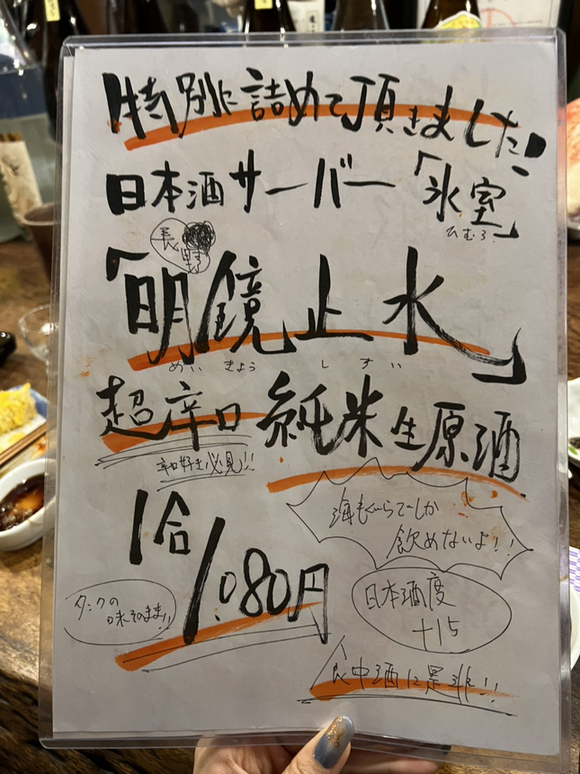 特別に詰めて頂きました!
日本酒サーバー「氷室」
ひむろ
長野
「明鏡止水」
めいきょうしすい
超辛口 純米生原酒
辛口好き必見!!
1合
1,080円
海もぐらでしか
飲めないよ!!
タンクの
味そのまま!!
日本酒度
+15
食中酒に是非!!